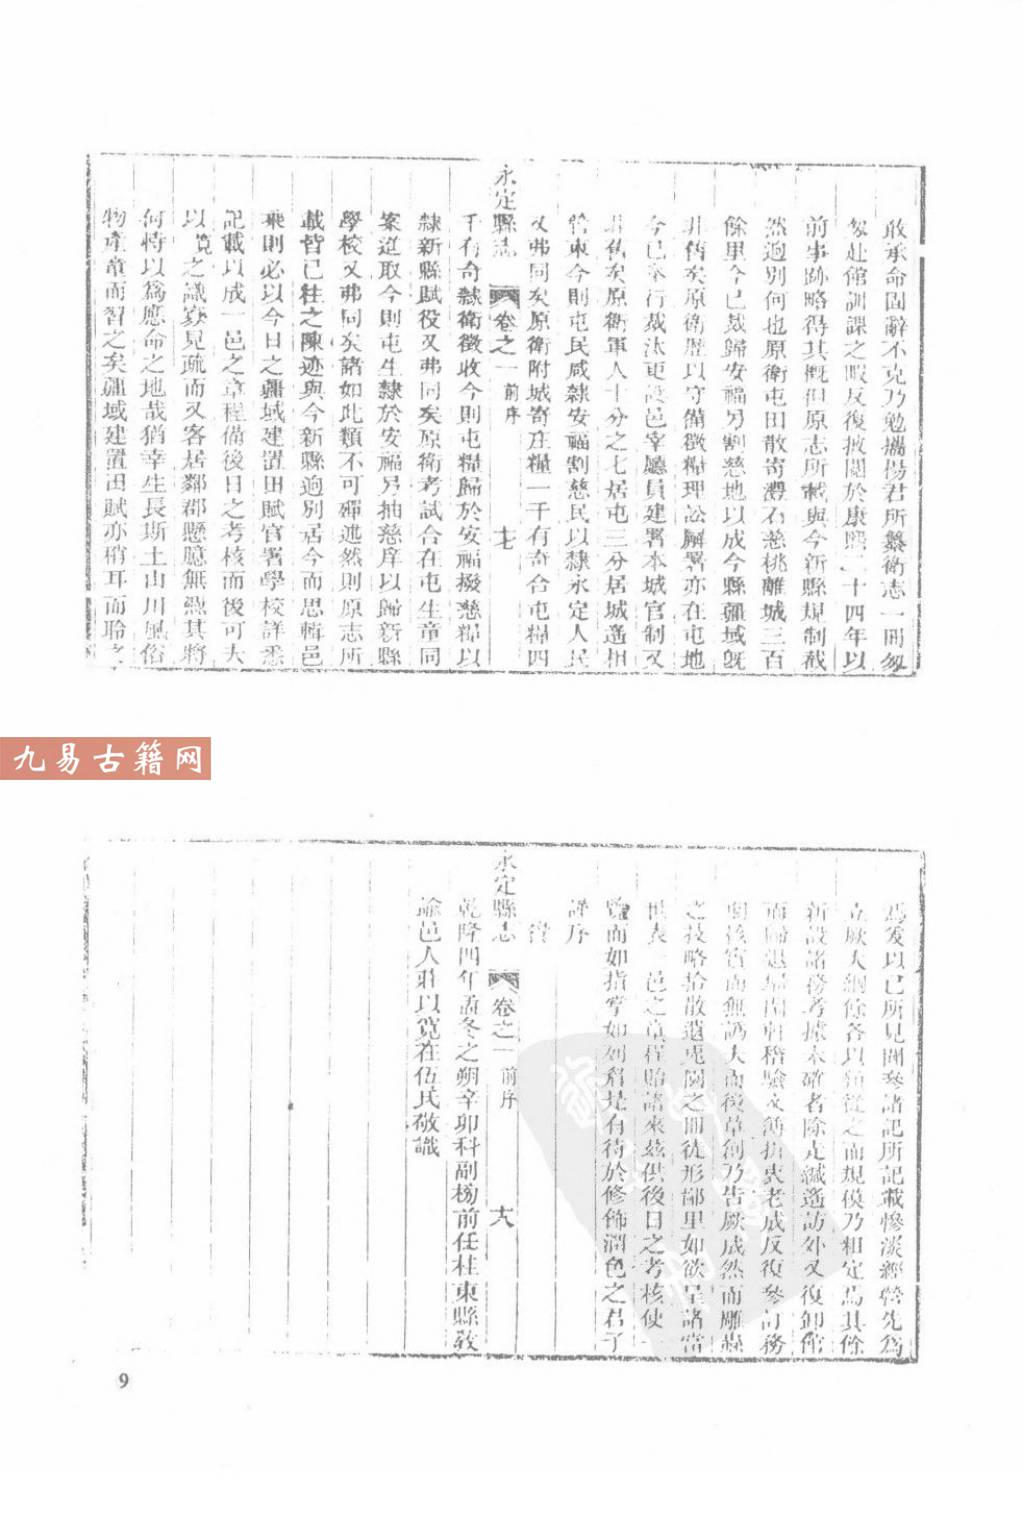 敢承命固辭不克乃勉攜楊君所纂衛志一冊匆
匆赴館訓課之暇反復披閱於康熙二十四年以
前事跡略得其概但原志所載與今新縣規制截
然逈別何也原衛屯田散寄澧石慈桃離城三百
餘里今已裁歸安福另割慈地以成今縣疆域旣
非舊矣原衛歷以守備徵糧理訟廨署亦在屯地
今已奉行裁汰更設邑宰廳員建署本城官制又
非舊矣原衛軍人十分之七居屯三分居城遙相
管束今則屯民咸隸安福割慈民以隸永定人民
又弗同矣原衛附城寄庄糧一千有奇合屯糧四
永定縣志
卷之一 前序
十七
千有奇隸衛徵收今則屯糧歸於安福撥慈糧以
隸新縣賦役又弗同矣原衛考試合在屯生童同
案進取今則屯生隸於安福另抽慈庠以歸新縣
學校又弗同矣諸如此類不可殫述然則原志所
載皆已往之陳迹與今新縣逈別居今而思輯邑
乘則必以今日之疆域建置田賦官署學校詳悉
記載以成一邑之章程備後日之考核而後可大
以寬之識寡見疏而又客居鄰郡懸臆無憑其將
何恃以爲應命之地哉猶幸生長斯土山川風俗
物產童而習之矣疆域建置田賦亦稍耳而聆之
焉爰以已所見聞參諸記所記載慘淡經營先爲
立厥大綱餘各以類從之而規模乃粗定焉其餘
新設諸務考據未確者除走緘遙訪外又復卸館
而歸退掃閒軒稽驗文簿扣衷老成反復參訂務
期核實而無訛大而後草創乃告厥成然而雕蟲
之技略拾散遺兎園之冊徒形鄙里如欲呈諸當
世表一邑之章程貽諸來茲供後日之考核使一
覽而如指掌如列眉是有待於修飾潤色之君子
謹序
永定縣志
卷之一 前序
十八
乾隆四年孟冬之朔辛卯科副榜前任桂東縣敎
諭邑人莊以寬在伍氏敬識
九易古籍网
9